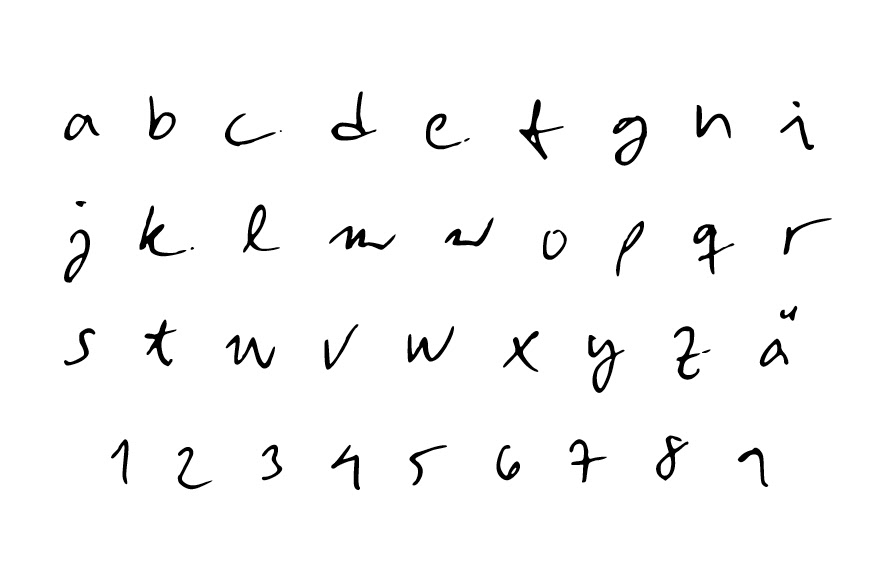 a b c d e f g h i
j k l m n o p q r
s t u v w x y z ä
1 2 3 4 5 6 7 8 9